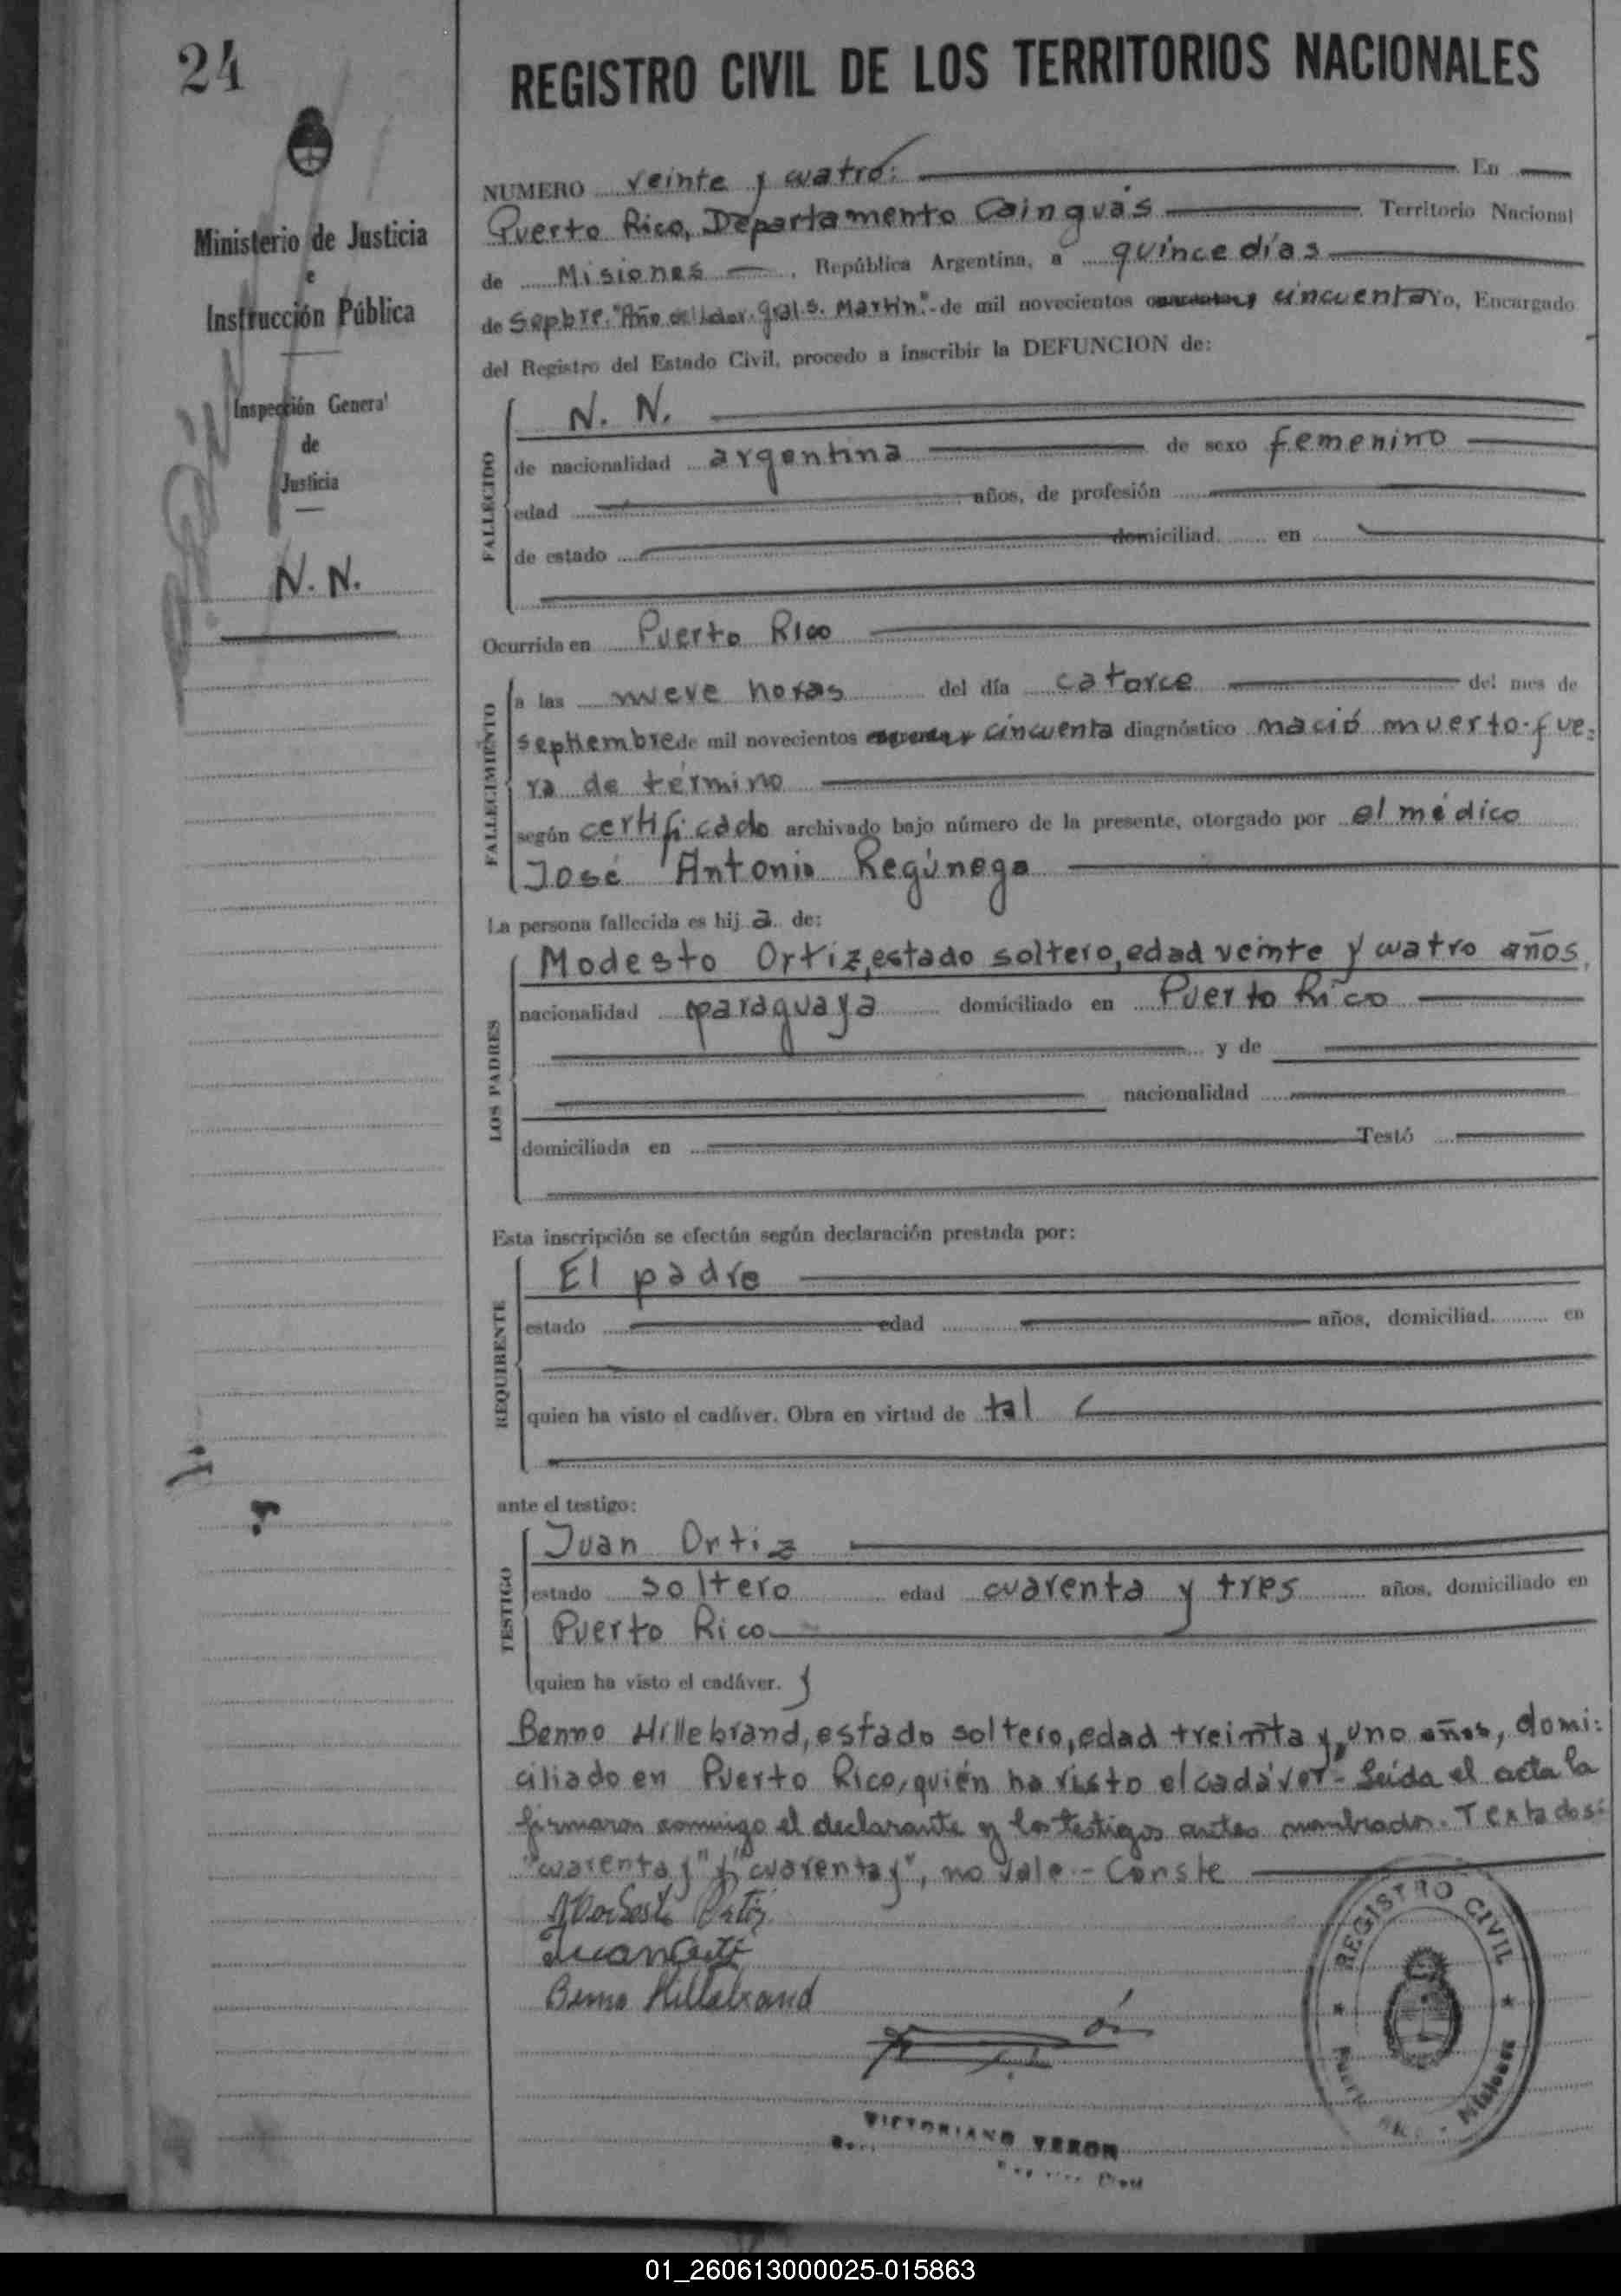 24
REGISTRO CIVIL DE LOS TERRITORIOS NACIONALES
Ministerio de Justicia
e
Instrucción Pública
Inspección General
de
Justicia
N. N.
NUMERO veinte y cuatro: En
Puerto Rico, Departamento Cainguás Territorio Nacional
de Misiones, República Argentina, a quince días
de Sepbre. "Año del Lider. Gral S. Martín".- de mil novecientos cincuenta Yo, Encargado
del Registro del Estado Civil, procedo a inscribir la DEFUNCION de:
FALLECIDO
N. N.
de nacionalidad argentina de sexo femenino
edad años, de profesión
de estado domiciliad en
Ocurrida en Puerto Rico
FALLECIMIENTO
a las nueve horas del día catorce del mes de
septiembre de mil novecientos cuarenta y cincuenta diagnóstico nació muerto-fue=
ra de término
según certificado archivado bajo número de la presente, otorgado por el médico
José Antonio Regúnega
La persona fallecida es hij a de:
LOS PADRES
Modesto Ortiz, estado soltero, edad veinte y cuatro años,
nacionalidad paraguaya domiciliado en Puerto Rico
y de
nacionalidad
domiciliada en Testó
Esta inscripción se efectúa según declaración prestada por:
REQUIRENTE
El padre
estado edad años, domiciliad en
quien ha visto el cadáver. Obra en virtud de tal
ante el testigo:
TESTIGO
Juan Ortiz
estado soltero edad cuarenta y tres años, domiciliado en
Puerto Rico
quien ha visto el cadáver. y
Benno Hillebrand, estado soltero, edad treinta y uno años, domi=
ciliado en Puerto Rico, quién ha visto el cadáver.- Leída el acta la
firmaron conmigo el declarante y los testigos antes nombrados. Textados:
"cuarenta y" y "cuarenta y", no vale.- Conste
Modesto Ortiz
Juan Ortiz
Benno Hillebrand
REGISTRO CIVIL
Misiones
VICTORIANO VERON
01_260613000025-015863